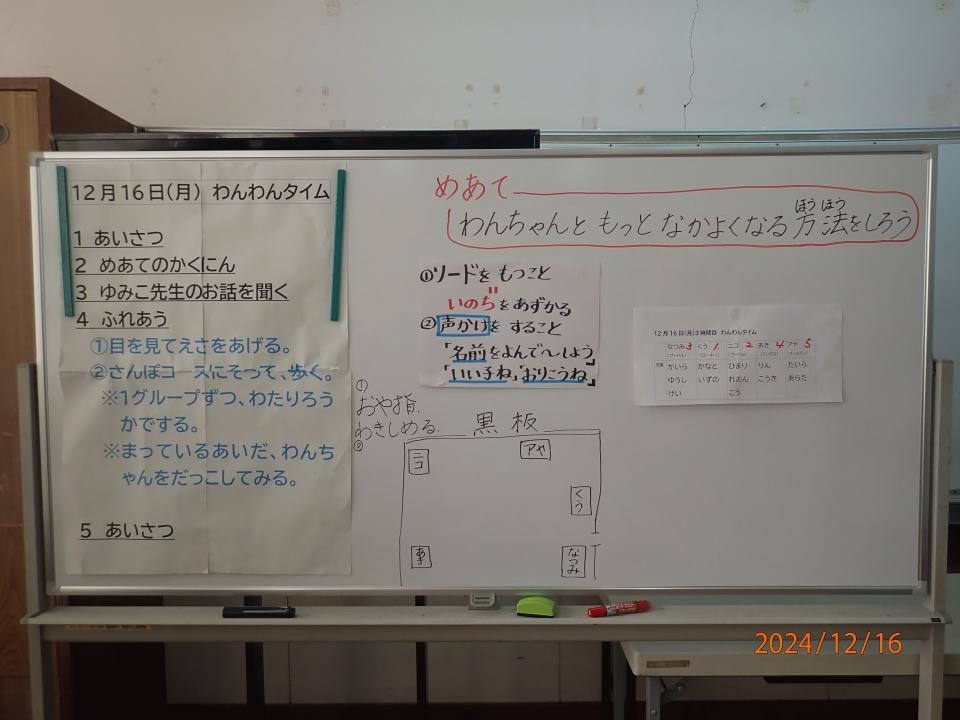 12月16日(月) わんわんタイム
1 あいさつ
2 めあてのかくにん
3 ゆみこ先生のお話を聞く
4 ふれあう
①目を見てえさをあげる。
②さんぽコースにそって、歩く。
※1グループずつ、わたりろう
かでする。
※まっているあいだ、わんち
ゃんをだっこしてみる。
5 あいさつ
めあて
わんちゃんと もっと なかよくなる 方法をしろう
ほう ほう
①リードを もつこと
いのちをあずかる
②声かけを すること
「名前をよんで〜しよう」
「いい子ね」「おりこうね」
①
おや指.
わきしめる.
②
黒板
ニコ
アヤ
くう
あき
なつみ
12月16日(月)3時間目 わんわんタイム
なつみ3 くう1. ニコ2 あき4 アヤ5
かいら かなと ひまり りん たいら
ゆうし いずの れおん こうき あらた
けい こう
2024/12/16